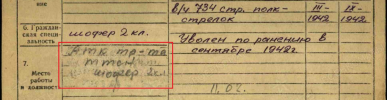 ное
в/ч 734 стр. полк-
стрелок
III-
1942
IX-
1942
6. Граждан-
ская специ-
альность
шофер 2 кл.
Уволен по ранению в
сентябре 1942г.
7.
Место
работы
и должность
шофер. 2 кл
11.02.